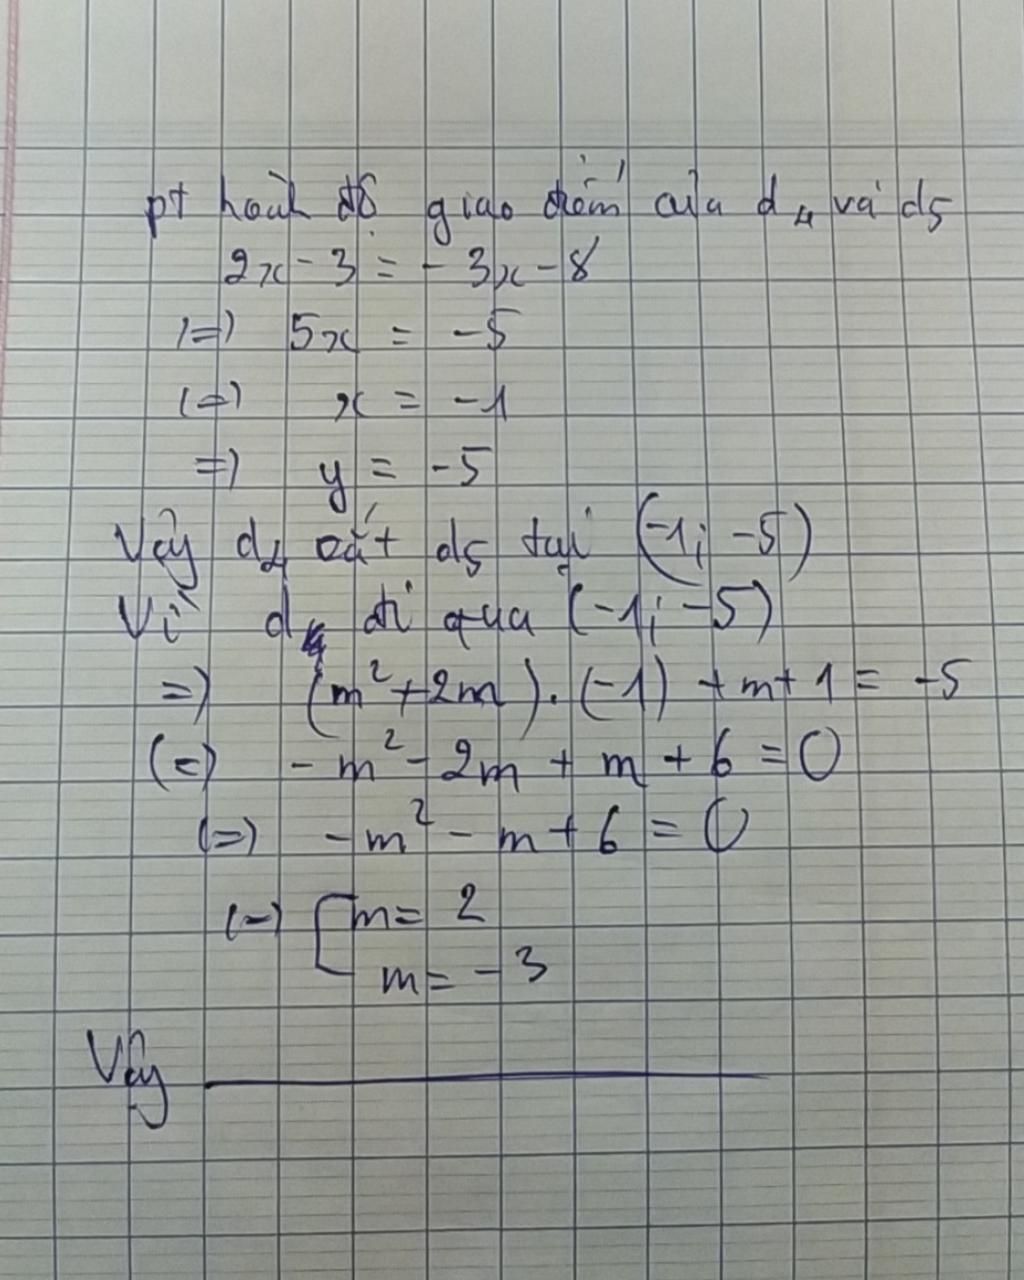 pt hoành độ giao điểm của d₄ và d₅
2x - 3 = - 3x - 8
(=) 5x = -5
(=) x = -1
=) y = -5
Vậy d₄ cắt d₅ tại (-1; -5)
Vì d đi qua (-1; -5)
=) (m² + 2m) . (-1) + m + 1 = -5
(=) - m² - 2m + m + 6 = 0
(=) - m² - m + 6 = 0
(=) [ m = 2
m = - 3
Vậy